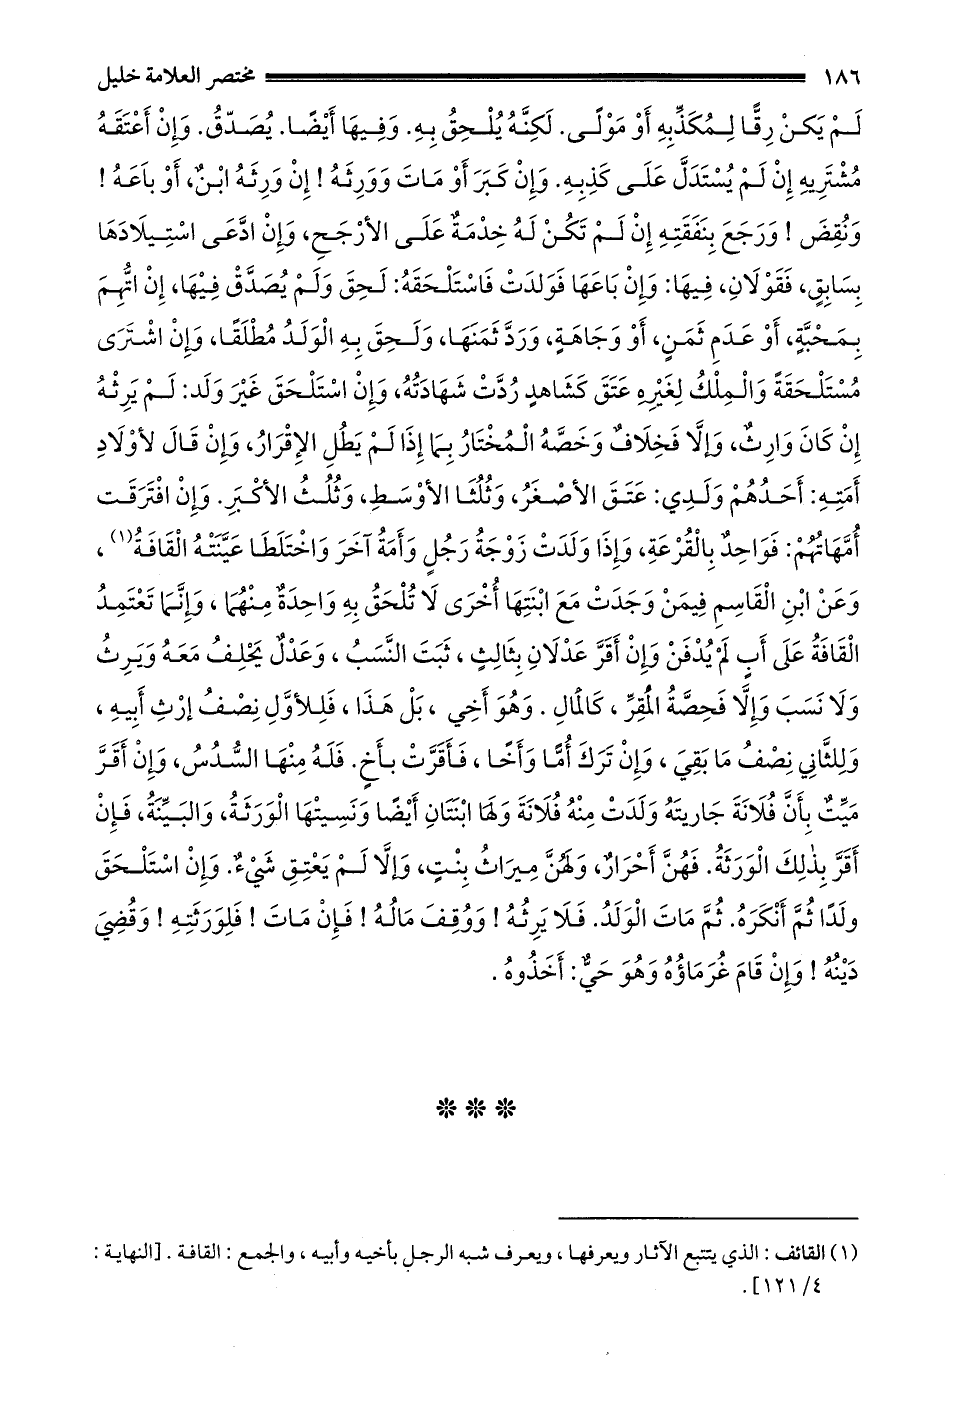 ١٨٦ مختصر العلامة خليل
لَـمْ يَكـنْ رِقًّـا لِـمُكَذِّبِهِ أَوْ مَوْلًـى. لَكِنَّـهُ يُلْـحِقُ بِـهِ. وَفِـيهَا أَيْضًـا. يُصَـدّقُ. وَإِنْ أَعْتَقَـهُ
مُشْتَرِيهِ إِنْ لَـمْ يُسْتَدَلَّ عَلَـى كَذِبِهِ. وَإِنْ كَبَرَ أَوْ مَاتَ وَوَرِثَهُ ! إِنْ وَرِثَهُ ابْـنٌ، أَوْ بـاعَـهُ !
وَنُقِضَ ! وَرَجَعَ بِنَفَقَتِهِ إِنْ لَـمْ تَكُـنْ لَـهُ خِدْمَةٌ عَلَـى الأَرْجَـحِ، وَإِنْ ادَّعَـى اسْتِـيلَادَهَا
بِسَابِقٍ، فَقَوْلَانِ، فِـيهَا: وَإِنْ بَاعَهَا فَوَلدَتْ فَاسْتَلْـحَقَهُ: لَـحِقَ وَلَـمْ يُصَدَّقْ فِـيْهَا، إِنْ اتُّهِـمَ
بِـمَحْبَّةٍ، أَوْ عَـدَمِ ثَمَـنٍ، أَوْ وَجَاهَـةٍ، وَرَدَّ ثَمَنَهَـا، وَلَـحِقَ بِـهِ الْوَلَـدُ مُطْلَقًـا، وَإِنْ اشْـتَرَى
مُسْتَلْـحَقَةً وَالْـمِلْكُ لِغَيْرِهِ عَتَقَ كَشَاهدٍ رُدَّتْ شَهَادَتُهُ، وَإِنْ اسْتَلْـحَقَ غَيْرَ وَلَد: لَـمْ يَرِثْـهُ
إِنْ كَانَ وَارِثٌ، وَإِلَّا فَخِلَافٌ وَخَصَّهُ الْـمُخْتَارُ بِمَا إِذَا لَـمْ يَطُلِ الإِقْرَارُ، وَإِنْ قَـالَ لأَوْلَادِ
أَمَتِـهِ: أَحَـدُهُمْ وَلَـدِي: عَتَـقَ الأَصْـغَرُ، وَثُلُثَـا الأَوْسَـطِ، وَثُلُـثُ الأَكْبَـرِ. وَإِنْ افْتَرَقَـت
أُمَّهَاتُهُمْ: فَوَاحِدٌ بِالْقُرْعَةِ، وَإِذَا وَلَدَتْ زَوْجَةُ رَجُلٍ وَأَمَةُ آخَرَ وَاخْتَلَطَا عَيَّنَتْهُ الْقَافَةُ(١) ،
وَعَنْ ابْنِ الْقَاسِمِ فِيمَنْ وَجَدَتْ مَعَ ابْنَتِهَا أُخْرَى لَا تُلْحَقُ بِهِ وَاحِدَةٌ مِنْهُمَا ، وَإِنَّمَا تَعْتَمِدُ
الْقَافَةُ عَلَى أَبٍ لَمْ يُدْفَنْ وَإِنْ أَقَرَّ عَدْلَانِ بِثَالِثٍ ، ثَبَتَ النَّسَبُ ، وَعَدْلٌ يَحْلِفُ مَعَهُ وَيَرِثُ
وَلَا نَسَبَ وَإِلَّا فَحِصَّةُ المُقِرِّ ، كَالمَالِ . وَهُوَ أَخِي ، بَلْ هَذَا ، فَلِلأوَّلِ نِصْفُ إِرْثِ أَبِيهِ ،
وَلِلثَّانِي نِصْفُ مَا بَقِيَ ، وَإِنْ تَرَكَ أُمًّا وَأَخًا ، فَـأَقَرَّتْ بـأَخٍ. فَلَـهُ مِنْهَـا السُّدُسُ، وَإِنْ أَقَرَّ
مَيِّتٌ بِأَنَّ فُلَانَةَ جَارِيَتَهُ وَلَدَتْ مِنْهُ فُلَانَةَ وَلَهَا ابْنَتَانِ أَيْضًا وَنَسِيتْهَا الْوَرَثَةُ، وَالبَـيِّنَةُ، فَـإِنْ
أَقَرَّ بِذٰلِكَ الْوَرَثَةُ. فَهُنَّ أَحْرَارٌ، وَلَهُنَّ مِـيرَاثُ بِنْـتٍ، وَإِلَّا لَـمْ يَعْتِـقِ شَـيْءٌ. وَإِنْ اسْتَلْـحَقَ
ولَدًا ثُمَّ أَنْكَرَهُ. ثُمَّ مَاتَ الْوَلَدُ. فَـلَا يَرِثُـهُ ! وَوُقِـفَ مَالُـهُ ! فَـإِنْ مَـاتَ ! فَلِوَرَثَتِـهِ ! وَقُضِيَ
دَيْنُهُ ! وَإِنْ قَامَ غُرَمَاؤُهُ وَهُوَ حَيٌّ: أَخَذُوهُ .
(١) القائف : الذي يتتبع الآثار ويعرفها ، ويعرف شبه الرجل بأخيه وأبيه ، والجمع : القافة . [النهاية :
٤/ ١٢١].